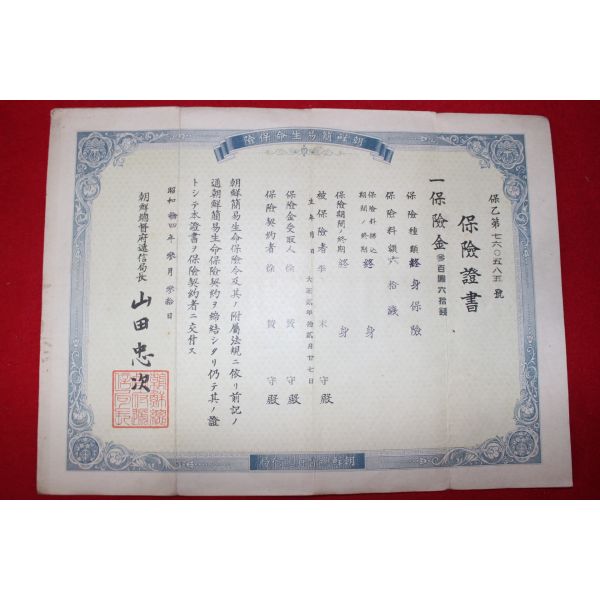 朝鮮簡易生命保險
保乙第七六〇五八五號
保險證書
一保險金參百圓六拾錢
保險種類終身保險
保險料額六拾錢
保險料拂込期間ノ終期終身
保險期間ノ終期終身
被保險者李末守殿
生年月日大正貳年拾貳月廿七日
保險金受取人徐賛守殿
保險契約者徐賛守殿
朝鮮簡易生命保險令及其ノ附屬法規ニ依リ前記ノ
通朝鮮簡易生命保險契約ヲ締結シタリ仍テ其ノ證
トシテ本證書ヲ保險契約者ニ交付ス
昭和拾四年參月參拾日
朝鮮總督府遞信局長
山田忠次